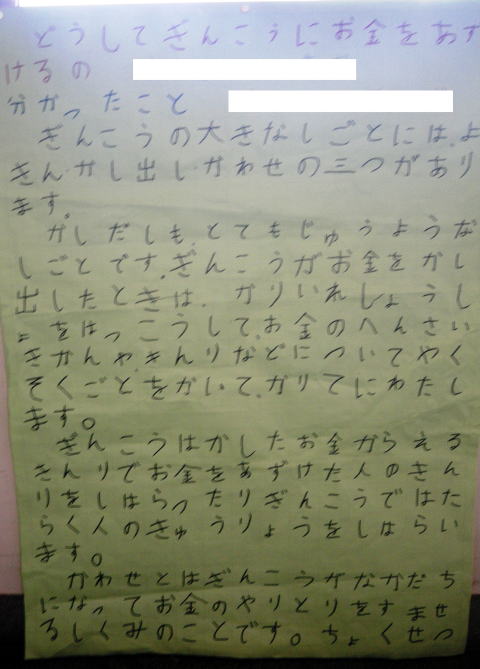 どうしてぎんこうにお金をあず
けるの
分かったこと
ぎんこうの大きなしごとには、よ
きん・かし出し・かわせの三つがあり
ます。
かしだしも、とてもじゅうような
しごとです。ぎんこうがお金をかし
出したときは、かりいれしょうし
ょをはっこうして、お金のへんさい
きかんや、きんりなどについてやく
そくごとをかいて、かりてにわたし
ます。
ぎんこうはかしたお金からえる
きんりでお金をあずけた人のきん
りをしはらったりぎんこうではた
らく人のきゅうりょうをしはらい
ます。
かわせとはぎんこうがなかだち
になってお金のやりとりをすませ
るしくみのことです。ちょくせつ